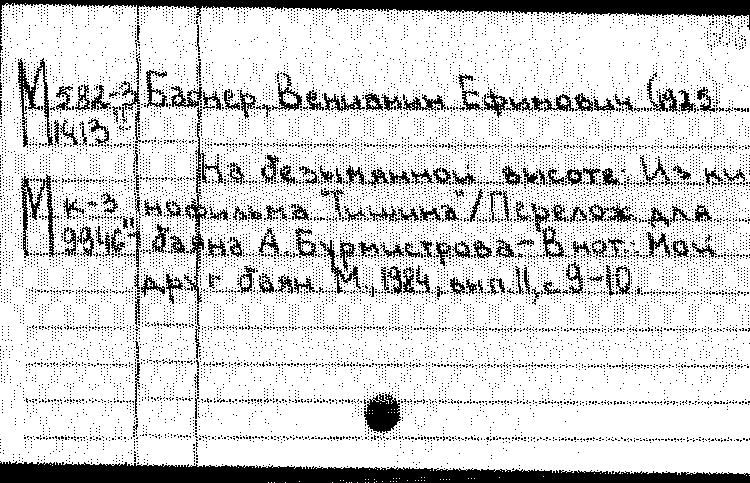 М 582-3 Баснер, Вениамин Ефимович (1925
1413
На безымянной высоте: Из ки
М к-3 нофильма "Тишина" / Перелож. для
9946 баяна А. Бурмистрова. - В нот.: Мой
друг баян. М., 1984, вып. 11, с 9-10.